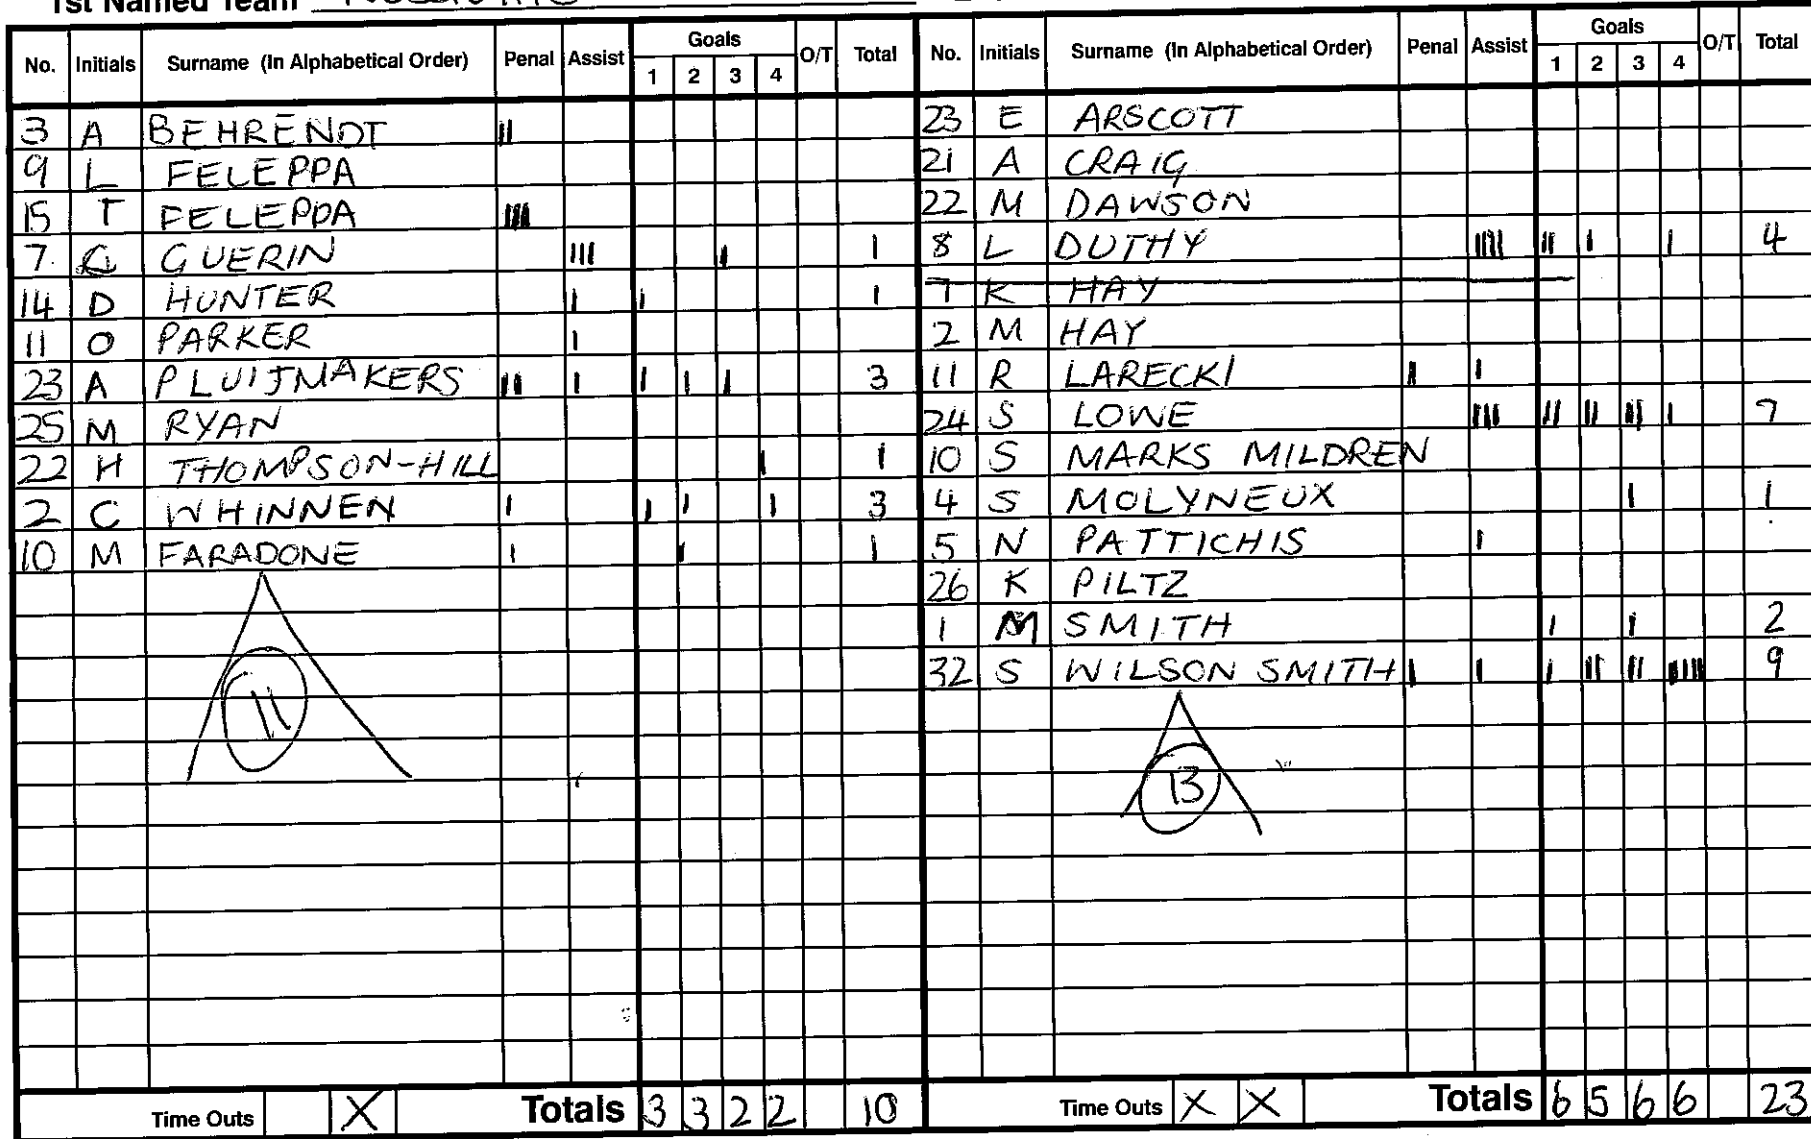 1st Named Team
No. Initials Surname (In Alphabetical Order) Penal Assist Goals 1 2 3 4 O/T Total
3 A BEHRENDT II
9 L FELEPPA
15 T FELEPPA IIII
7 C GUERIN III I 1
14 D HUNTER I I 1
11 O PARKER I
23 A PLUIJMAKERS II I I I I 3
25 M RYAN
22 H THOMPSON-HILL I 1
2 C WHINNEN I I I I 3
10 M FARADONE I I 1
11
Time Outs X Totals 3 3 2 2 10
No. Initials Surname (In Alphabetical Order) Penal Assist Goals 1 2 3 4 O/T Total
23 E ARSCOTT
21 A CRAIG
22 M DAWSON
8 L DUTHY IIIII II I I 4
7 K HAY
2 M HAY
11 R LARECKI I I
24 S LOWE IIII II II II I 7
10 S MARKS MILDREN
4 S MOLYNEUX I 1
5 N PATTICHIS I
26 K PILTZ
1 M SMITH I I 2
32 S WILSON SMITH I I I II II IIII 9
13
Time Outs X X Totals 6 5 6 6 23